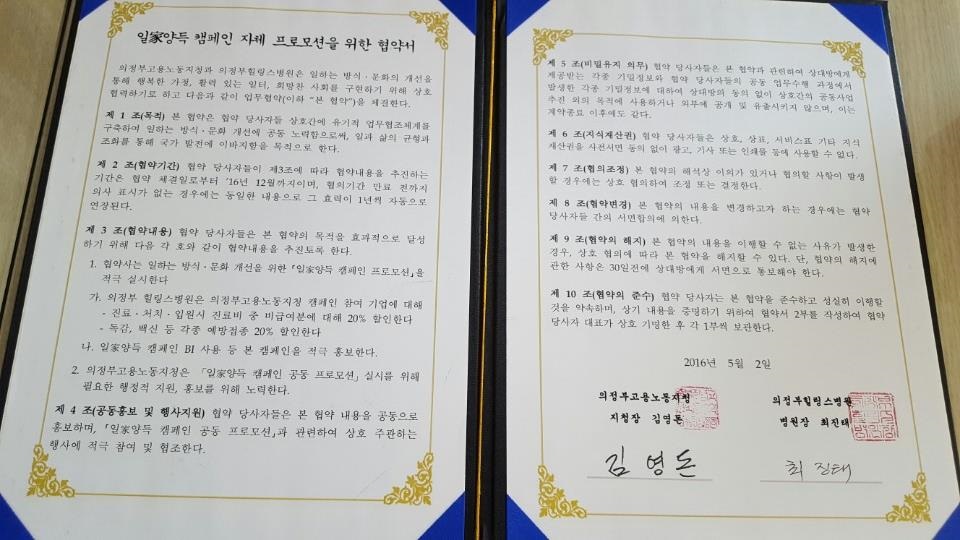 일家양득 캠페인 자체 프로모션을 위한 협약서
의정부고용노동지청과 의정부힐링스병원은 일하는 방식·문화의 개선을
통해 행복한 가정, 활력 있는 일터, 희망찬 사회를 구현하기 위해 상호
협력하기로 하고 다음과 같이 업무협약(이하 "본 협약")을 체결한다.
제 1 조(목적) 본 협약은 협약 당사자들 상호간에 유기적 업무협조체계를
구축하여 일하는 방식·문화 개선에 공동 노력함으로써, 일과 삶의 균형과
조화를 통해 국가 발전에 이바지함을 목적으로 한다.
제 2 조(협약기간) 협약 당사자들이 제3조에 따라 협약내용을 추진하는
기간은 협약 체결일로부터 '16년 12월까지이며, 협의기간 만료 전까지
의사 표시가 없는 경우에는 동일한 내용으로 그 효력이 1년씩 자동으로
연장된다.
제 3 조(협약내용) 협약 당사자들은 본 협약의 목적을 효과적으로 달성
하기 위해 다음 각 호와 같이 협약내용을 추진토록 한다.
1. 협약사는 일하는 방식·문화 개선을 위한「일家양득 캠페인 프로모션」을
적극 실시한다
가. 의정부 힐링스병원은 의정부고용노동지청 캠페인 참여 기업에 대해
- 진료·처치·입원시 진료비 중 비급여분에 대해 20% 할인한다
- 독감, 백신 등 각종 예방접종 20% 할인한다
나. 일家양득 캠페인 BI 사용 등 본 캠페인을 적극 홍보한다.
2. 의정부고용노동지청은 「일家양득 캠페인 공동 프로모션」 실시를 위해
필요한 행정적 지원, 홍보를 위해 노력한다.
제 4 조(공동홍보 및 행사지원) 협약 당사자들은 본 협약 내용을 공동으로
홍보하며, 「일家양득 캠페인 공동 프로모션」과 관련하여 상호 주관하는
행사에 적극 참여 및 협조한다.
제 5 조(비밀유지 의무) 협약 당사자들은 본 협약과 관련하여 상대방에게
제공받는 각종 기밀정보와 협약 당사자들의 공동 업무수행 과정에서
발생한 각종 기밀정보에 대하여 상대방의 동의 없이 상호간의 공동사업
추진 외의 목적에 사용하거나 외부에 공개 및 유출시키지 않으며, 이는
계약종료 이후에도 같다.
제 6 조(지식재산권) 협약 당사자들은 상호, 상표, 서비스표 기타 지식
재산권을 사전서면 동의 없이 광고, 기사 또는 인쇄물 등에 사용할 수 없다.
제 7 조(협의조정) 본 협약의 해석상 이의가 있거나 협의할 사항이 발생
할 경우에는 상호 협의하여 조정 또는 결정한다.
제 8 조(협약변경) 본 협약의 내용을 변경하고자 하는 경우에는 협약
당사자들 간의 서면합의에 의한다.
제 9 조(협약의 해지) 본 협약의 내용을 이행할 수 없는 사유가 발생한
경우, 상호 협의에 따라 본 협약을 해지할 수 있다. 단, 협약의 해지에
관한 사항은 30일전에 상대방에게 서면으로 통보해야 한다.
제 10 조(협약의 준수) 협약 당사자는 본 협약을 준수하고 성실히 이행할
것을 약속하며, 상기 내용을 증명하기 위하여 협약서 2부를 작성하여 협약
당사자 대표가 상호 기명한 후 각 1부씩 보관한다.
2016년 5월 2일
의정부고용노동지청
지청장 김영돈
김영돈
의정부힐링스병원
병원장 최진태
최진태